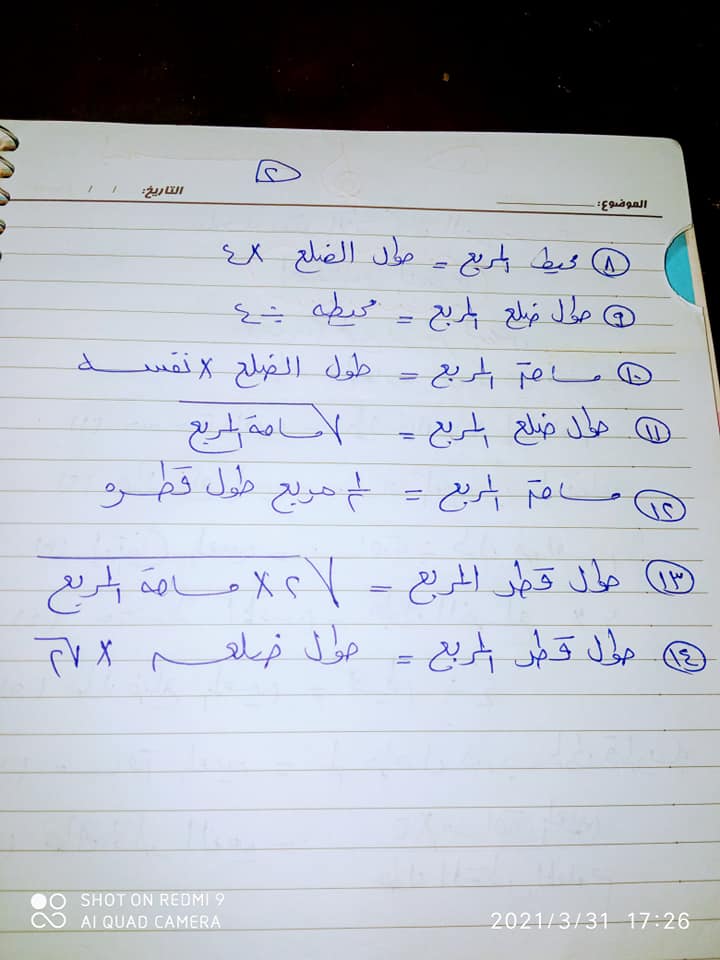 ٢
الموضوع: التاريخ: / /
٨ محيط المربع = طول الضلع × ٤
٩ طول ضلع المربع = محيطه ÷ ٤
١٠ مساحة المربع = طول الضلع × نفسه
١١ طول ضلع المربع = √مساحة المربع
١٢ مساحة المربع = ١/٢ مربع طول قطره
١٣ طول قطر المربع = √٢ × مساحة المربع
١٤ طول قطر المربع = طول ضلعه × √٢
SHOT ON REDMI 9
AI QUAD CAMERA
2021/3/31 17:26